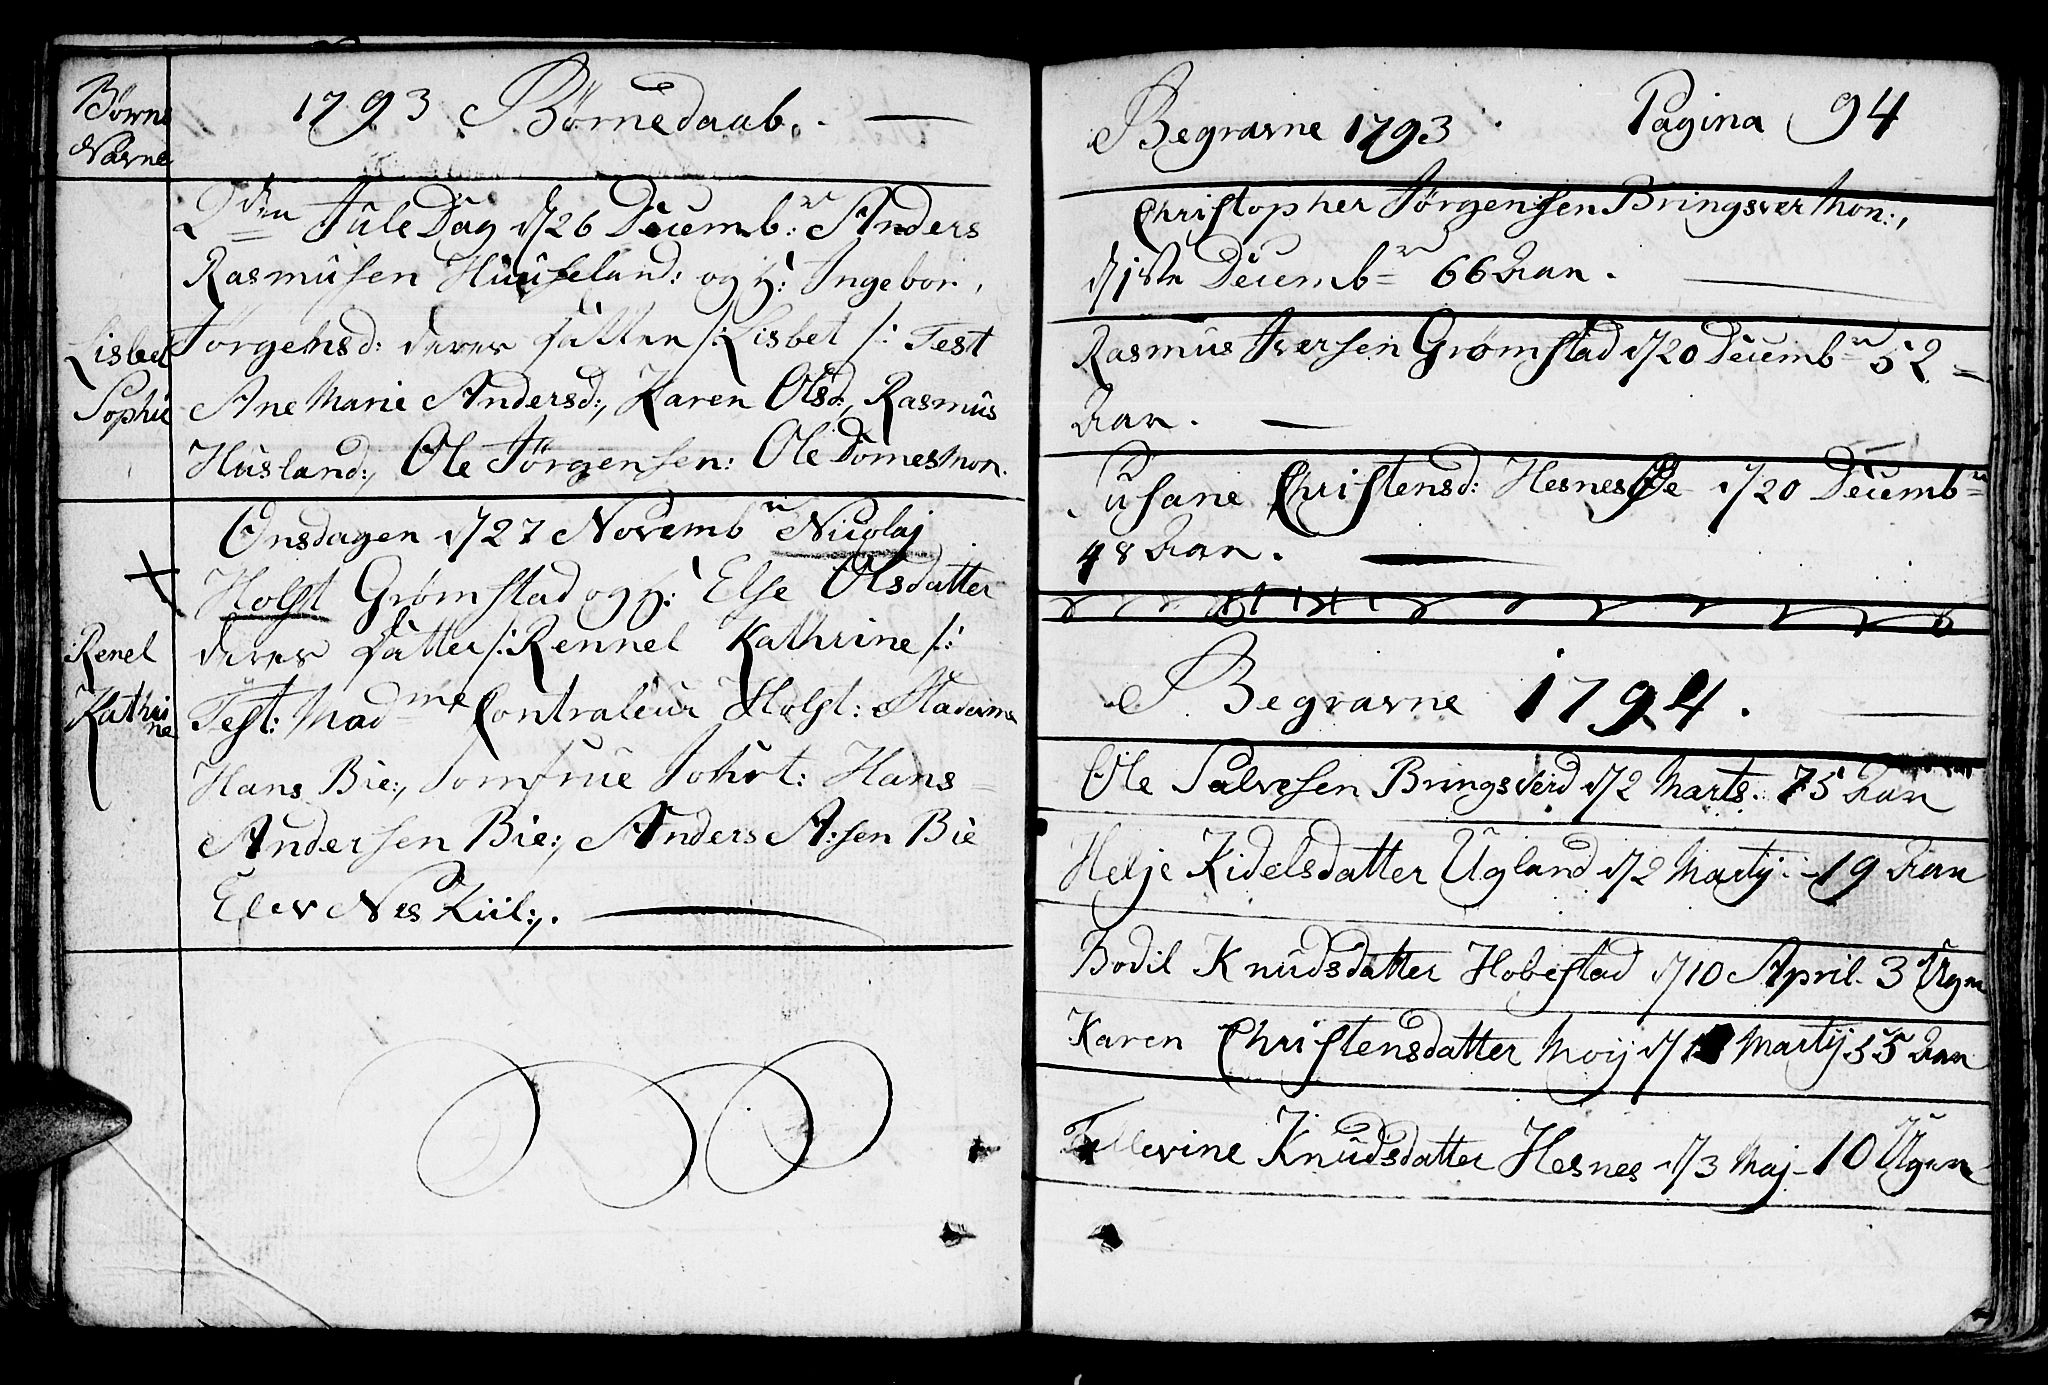 Børne
Navne
1793 Børnedaab.
2den Jule Dag d/26 Decembr: Anders
Rasmusen Huuseland: og H: Ingebor
Jørgensd: deres datter /: Lisbet /: Test
Lisbet
Sophie
Ane Marie Andersd:, Karen Olsd:, Rasmus
Husland:, Ole Jørgensen: Ole Domesmon.
Onsdagen d/27 Novembr Nicolaj
Holst Grømstad og H: Else Olsdatter
deres datter /: Rennel Kathrine /:
Renel
Kathri
ne
Test: Madme Contraleur Holst:
Hans Bie:, Jomfrue Hans
Andersen Bie:, Anders A:sen Bie
Nes Kiil:,.
Begravne 1793 Pagina 94
Christopher Jørgensen Bringsver mon:,
d/1ste Decembr 66 Aar.
Rasmus Iversen Grømstad d/20 Decembr 52
Aar.
Susane Christensd: HesnesØe d/20 Decembr
48 Aar.
Begravne 1794.
Ole Salvesen Bringsverd d/2 Marts. 75 Aar
Helje Kidelsdatter Ugland d/2 Martij: 19 Aar
Bodil Knudsdatter Hobestad d/10 April. 3 Uger
Karen Christensdatter Moij Martij 55 Aar
Tellevine Knudsdatter Hesnes d/3 Maj 10 Uger